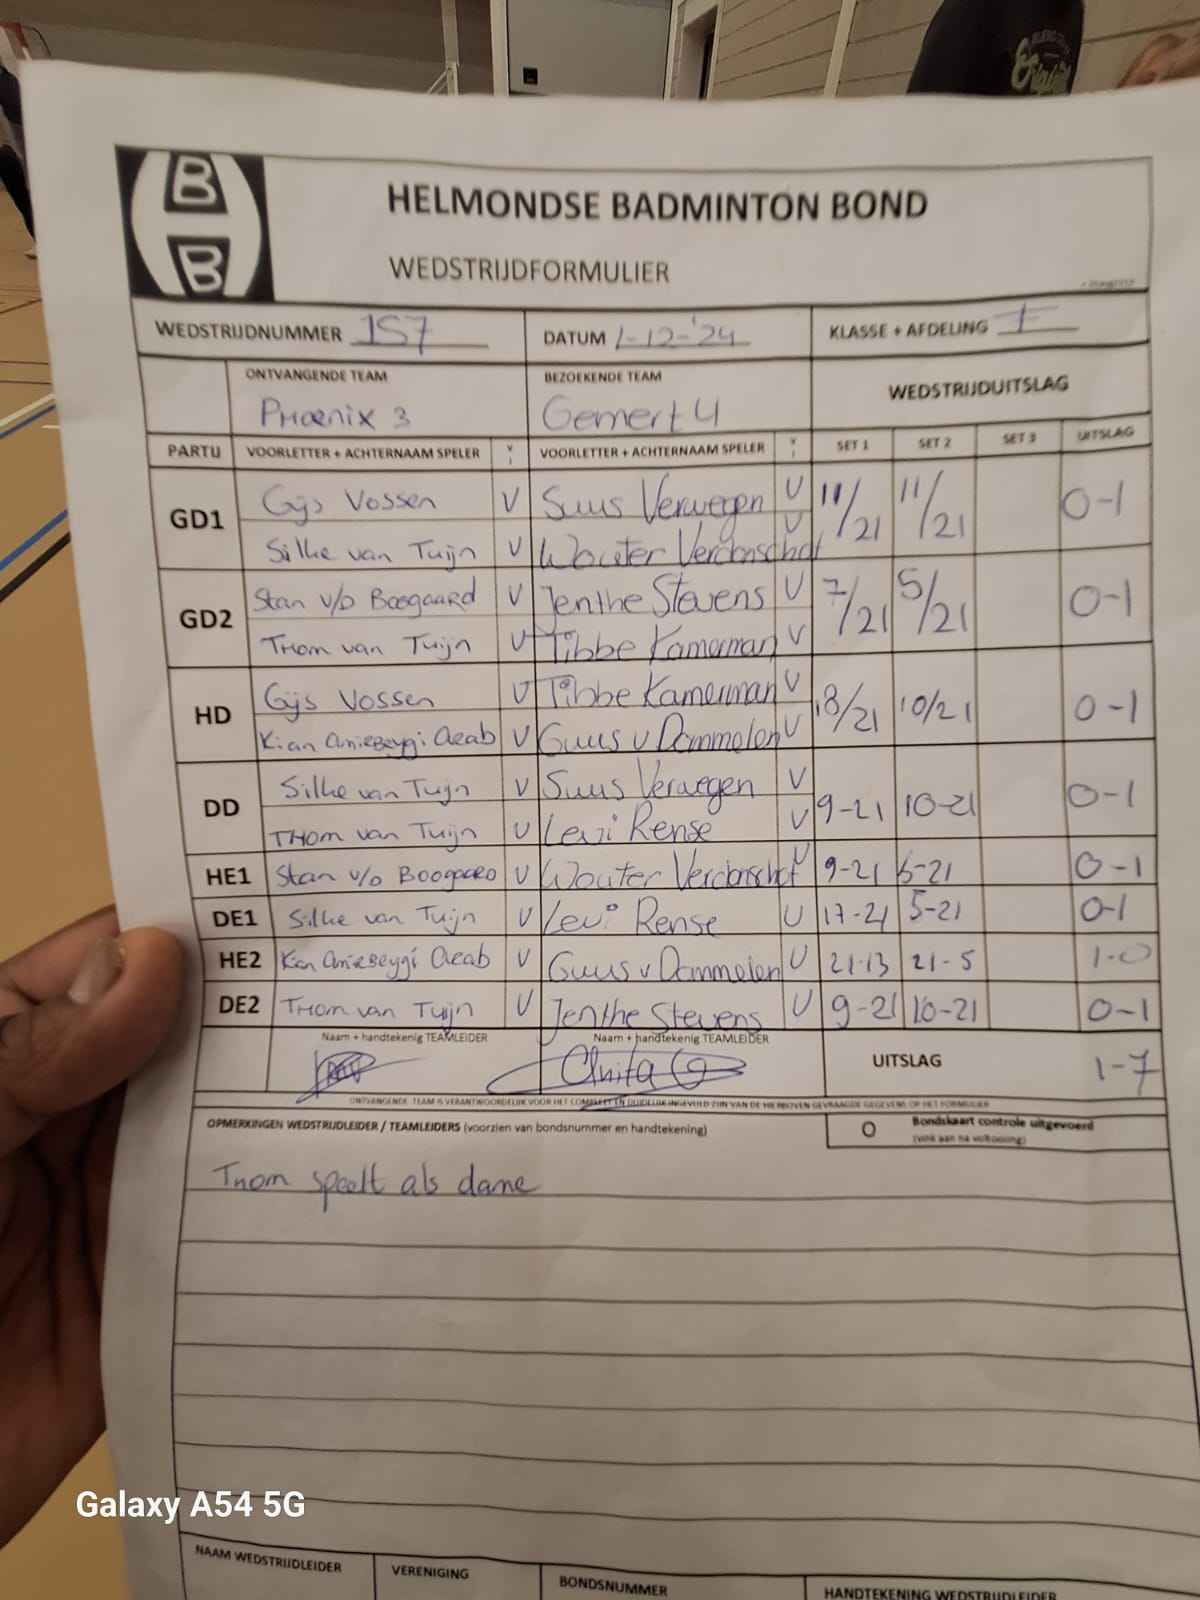 B
B
HELMONDSE BADMINTON BOND
WEDSTRIJDFORMULIER
WEDSTRIJDNUMMER 157 DATUM 1-12-'24 KLASSE + AFDELING F
ONTVANGENDE TEAM BEZOEKENDE TEAM WEDSTRIJDUITSLAG
Phoenix 3 Gemert 4
PARTIJ VOORLETTER + ACHTERNAAM SPELER V VOORLETTER + ACHTERNAAM SPELER V SET 1 SET 2 SET 3 UITSLAG
GD1 Gijs Vossen V Suus Verwegen V 11/21 11/21 0-1
Silke van Tuijn V Wouter Verdonschot V
GD2 Stan v/d Boogaard V Jenthe Stevens V 7/21 5/21 0-1
Thom van Tuijn V Tibbe Kamerman V
HD Gijs Vossen V Tibbe Kamerman V 18/21 10/21 0-1
Kian Amiebeygi Arab V Guus v Dommelen V
DD Silke van Tuijn V Suus Verwegen V 9-21 10-21 0-1
Thom van Tuijn V Levi Rense V
HE1 Stan v/d Boogaard V Wouter Verdonschot V 9-21 6-21 0-1
DE1 Silke van Tuijn V Levi Rense V 17-21 5-21 0-1
HE2 Kian Amiebeygi Arab V Guus v Dommelen V 21-13 21-5 1-0
DE2 Thom van Tuijn V Jenthe Stevens V 9-21 10-21 0-1
Naam + handtekenig TEAMLEIDER Naam + handtekenig TEAMLEIDER UITSLAG 1-7
Anita
ONTVANGENDE TEAM IS VERANTWOORDELIJK VOOR HET COMPLEET EN DUIDELIJK INGEVULD ZIJN VAN DE HIERBOVEN GEVRAAGDE GEGEVENS OP HET FORMULIER
OPMERKINGEN WEDSTRIJDLEIDER / TEAMLEIDERS (voorzien van bondsnummer en handtekening) O Bondskaart controle uitgevoerd
(vink aan na voltooiing)
Thom speelt als dame
Galaxy A54 5G
NAAM WEDSTRIJDLEIDER VERENIGING BONDSNUMMER HANDTEKENING WEDSTRIJDLEIDER